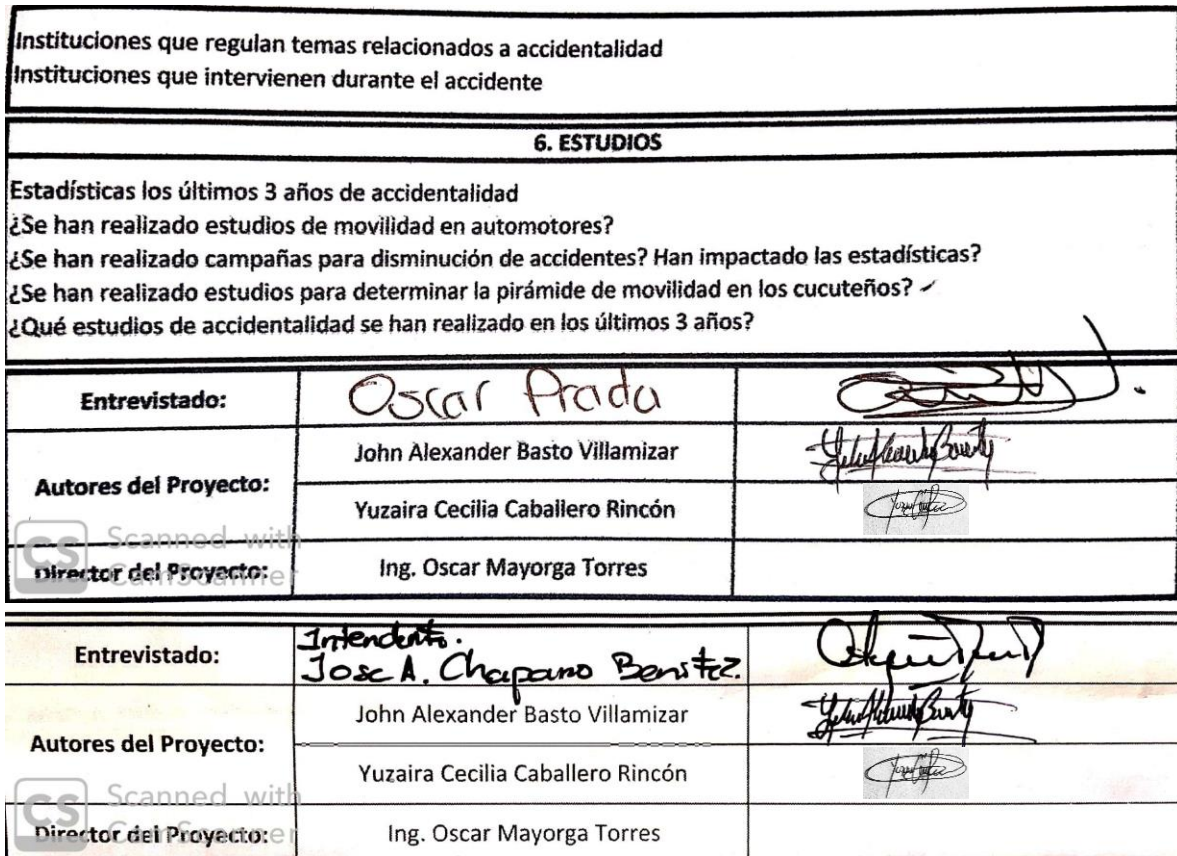 Instituciones que regulan temas relacionados a accidentalidad
Instituciones que intervienen durante el accidente
6. ESTUDIOS
Estadísticas los últimos 3 años de accidentalidad
¿Se han realizado estudios de movilidad en automotores?
¿Se han realizado campañas para disminución de accidentes? Han impactado las estadísticas?
¿Se han realizado estudios para determinar la pirámide de movilidad en los cucuteños? ✓
¿Qué estudios de accidentalidad se han realizado en los últimos 3 años?
Entrevistado:
Oscar Prada
Autores del Proyecto:
John Alexander Basto Villamizar
Yuzaira Cecilia Caballero Rincón
Director del Proyecto:
Ing. Oscar Mayorga Torres
CS Scanned with
CamScanner
Entrevistado:
Intendente.
Jose A. Chaparro Benitez.
Autores del Proyecto:
John Alexander Basto Villamizar
Yuzaira Cecilia Caballero Rincón
Director del Proyecto:
Ing. Oscar Mayorga Torres
CS Scanned with
CamScanner